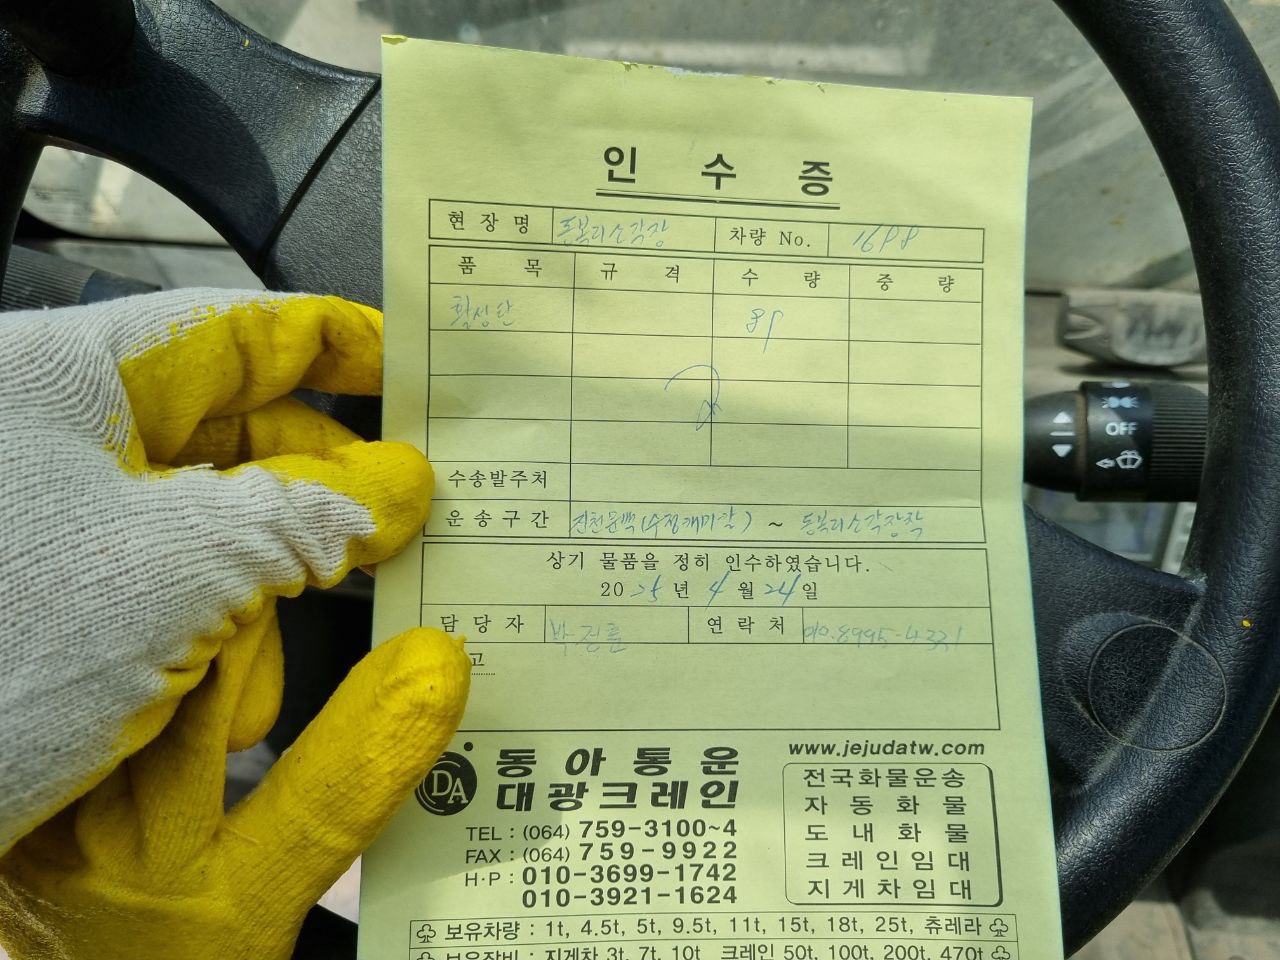 인 수 증
현 장 명 돈복리소각장 차량 No. 1698
품 목 규 격 수 량 중 량
활성탄 8p
수송발주처
운 송 구 간 ~ 돈복리소각장착
상기 물품을 정히 인수하였습니다.
20 25 년 4 월 24 일
담 당 자 연 락 처 010.8995-4331
고
DA
동 아 통 운
대광크레인
TEL : (064) 759-3100~4
FAX : (064) 759-9922
H·P : 010-3699-1742
010-3921-1624
www.jejudatw.com
전국화물운송
자 동 화 물
도 내 화 물
크 레 인 임 대
지 게 차 임 대
보유차량 : 1t, 4.5t, 5t, 9.5t, 11t, 15t, 18t, 25t, 츄레라
보유장비 : 지게차 3t, 7t, 10t 크레인 50t, 100t, 200t, 470t
OFF